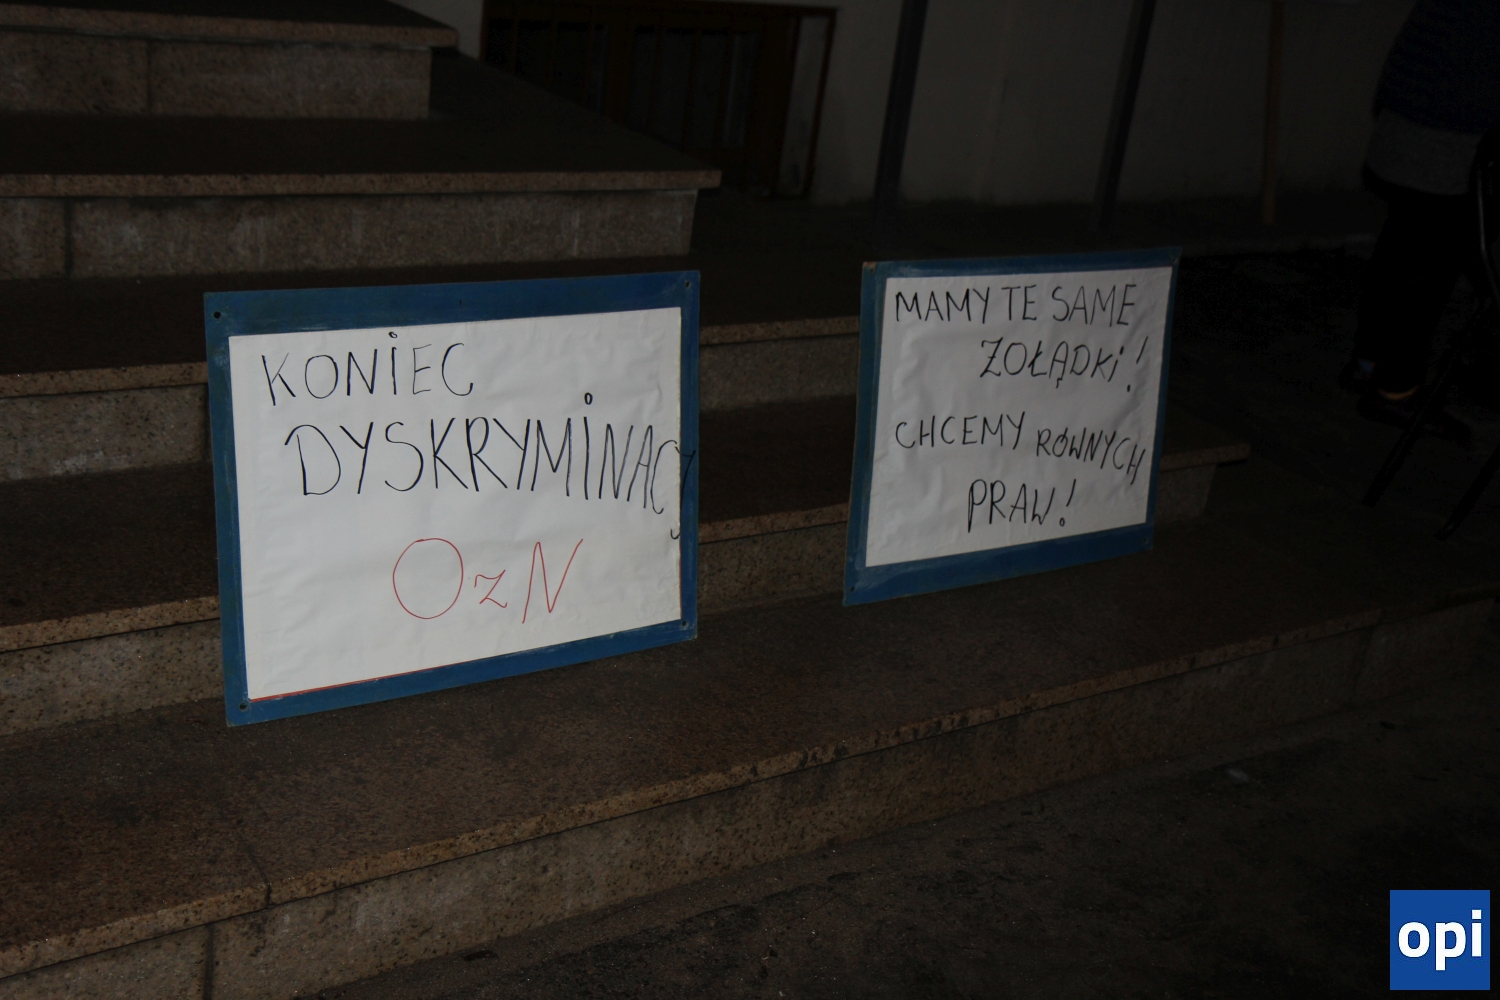 KONIEC
DYSKRYMINACY
OzN
MAMY TE SAME
ZOŁĄDKI!
CHCEMY RÓWNYCH
PRAW!
opi